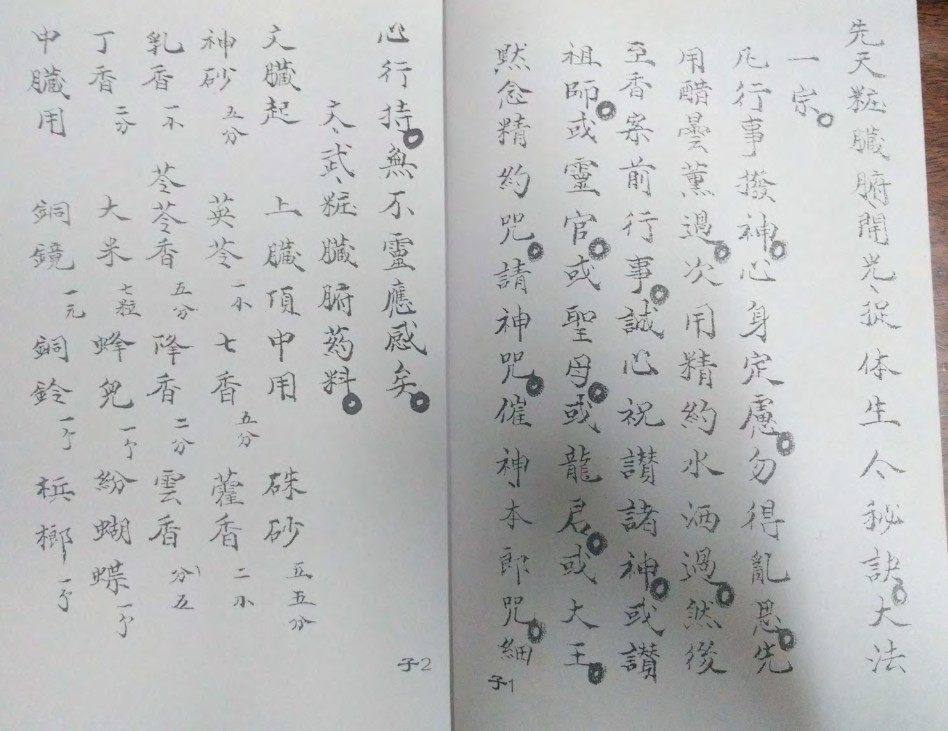 先天粧臟腑開光捉体生人秘訣大法
一宗
凡行事撥神心身定慮勿得亂思先
用醋曇薰過次用精約水洒過然後
至香案前行事誠心祝讃諸神或讃
祖師或靈官或聖母或龍君或大王
默念精約咒請神咒催神本郎咒細
子1
心行持無不靈應感矣
文武粧臟腑药料
文臟起 上臟頂中用 硃砂五五分
神砂五分 英苓一小 七香五分 藿香二小
乳香一小 苓苓香五分 降香二分 雲香分五
丁香二分 大米七粒 蜂兒一个 紛蝴蝶一个
中臟用 銅鏡一元 銅鈴一个 梹榔一个
子2